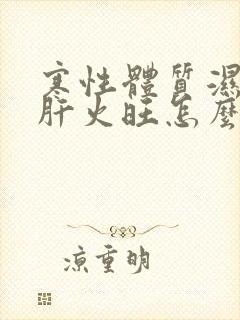 寒性體質濕
肝火旺怎麼
涼重明